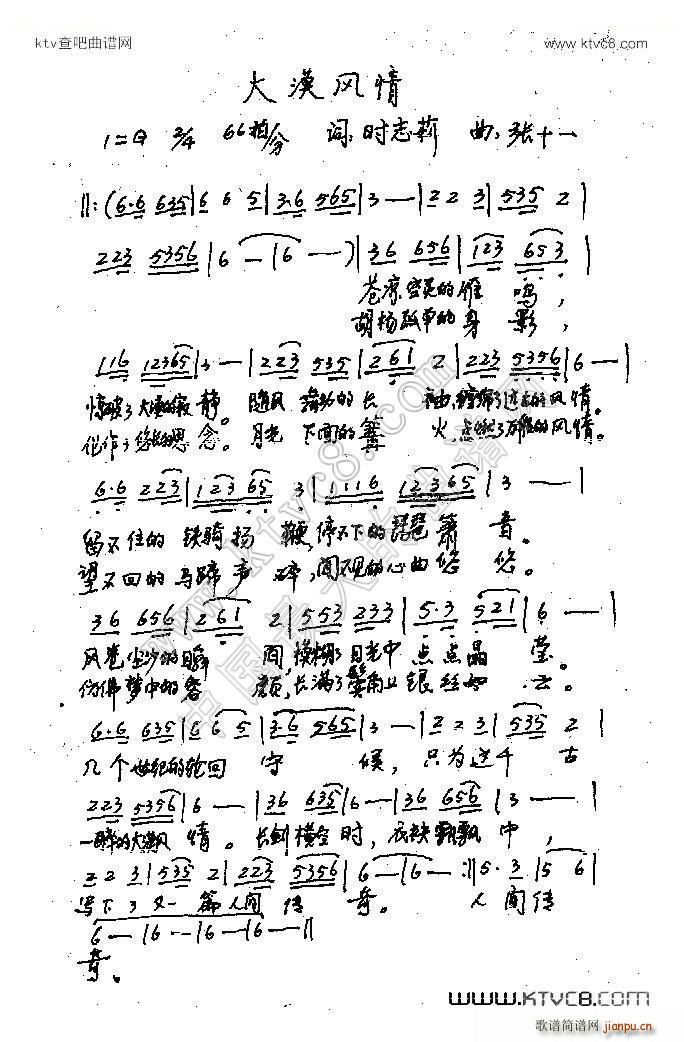 ktv查吧曲谱网 www.ktvc8.com
大漠风情
1=G 2/4 66拍/分 词:时志莉 曲:张十一
‖:(6·6 635|6 6 5|3·6 565|3 —|2 2 3|535 2|
223 5356|6 —|6 —)|36 656|123 653|
苍凉空灵的雁 鸣,
胡杨孤单的身 影,
116 12365|3 —|223 535|261 2|223 5356|6 —|
惊破了大漠的寂 静。 随风 舞动的长 袖,缠绵了远古的风情。
化作了悠长的思 念。 月光 下面的篝 火,点燃了万种的风情。
6·6 223|12365 3|1116 12365|3 —|
留不住的铁骑扬 鞭,停不下的琵琶箫 音。
望不回的马蹄声 碎,的心曲悠 悠。
36 656|261 2|553 233|5·3 521|6 —|
风卷尘沙的瞬 间,模糊了月光中 点点晶 莹。
仿佛梦中的容 颜,长满了鬓角上银丝如 云。
6·6 635|6 6 5|3·6 565|3 —|2 2 3|535 2|
几个世纪的轮回 守 候, 只为这千 古
223 5356|6 —|36 635|6 —|36 656|3 —|
一醉的大漠风 情。 长剑横空时, 衣袂飘飘中,
2 2 3|535 2|223 5356|6 —|6 —:‖5· 3|5 6|
写下了又一 篇人间 传 奇。 人间传
6 —|6 —|6 —|6 —‖
奇。
www.ktvc8.com
中国最大曲谱网
www.KTVC8.COM
歌谱简谱网
jianpu.cn